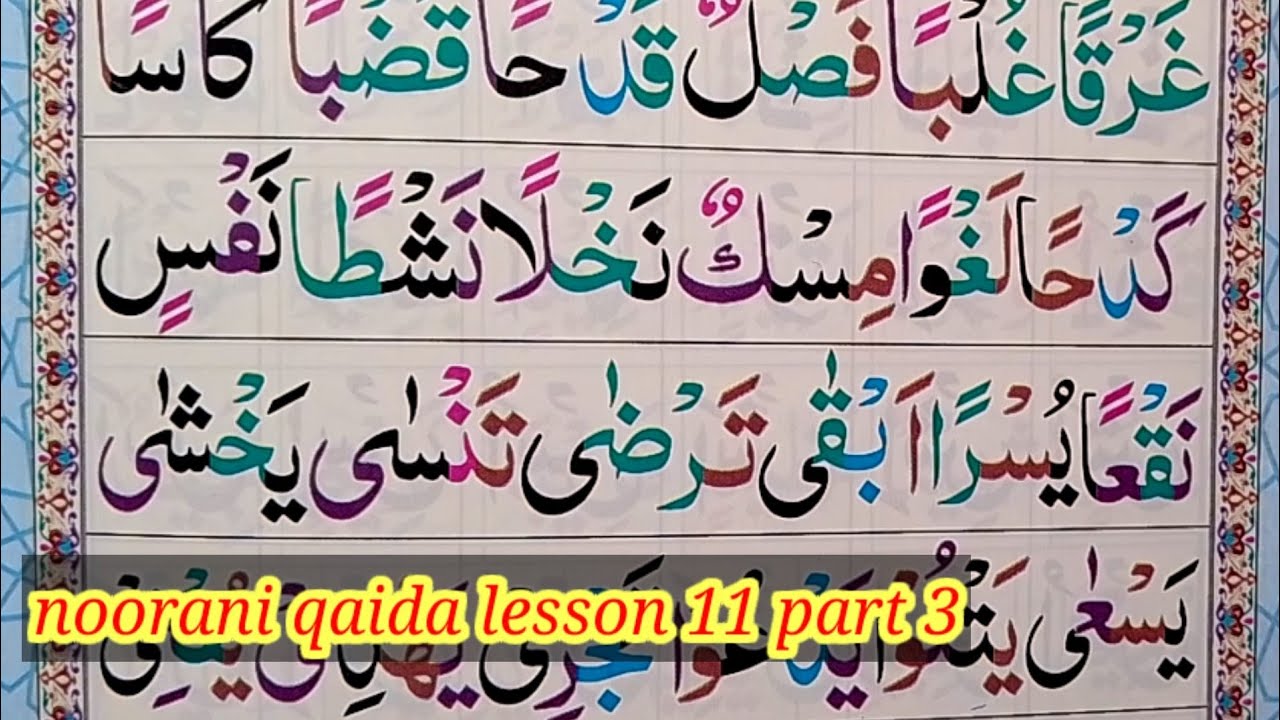 غَرْقًا غُلْبًا فَصْلٌ قَدْحًا قَضْبًا كَاسًا
كَدْحًا لَغْوًا مِسْكٌ نَخْلًا نَشْطًا نَفْسٍ
نَقْعًا يُسْرًا اَبْقٰى تَرْضٰى تَنْسٰى يَخْشٰى
يَسْعٰى يَتْلُوْا يَدْعُوْا تَجْرِىْ يَهْدِىْ
noorani qaida lesson 11 part 3